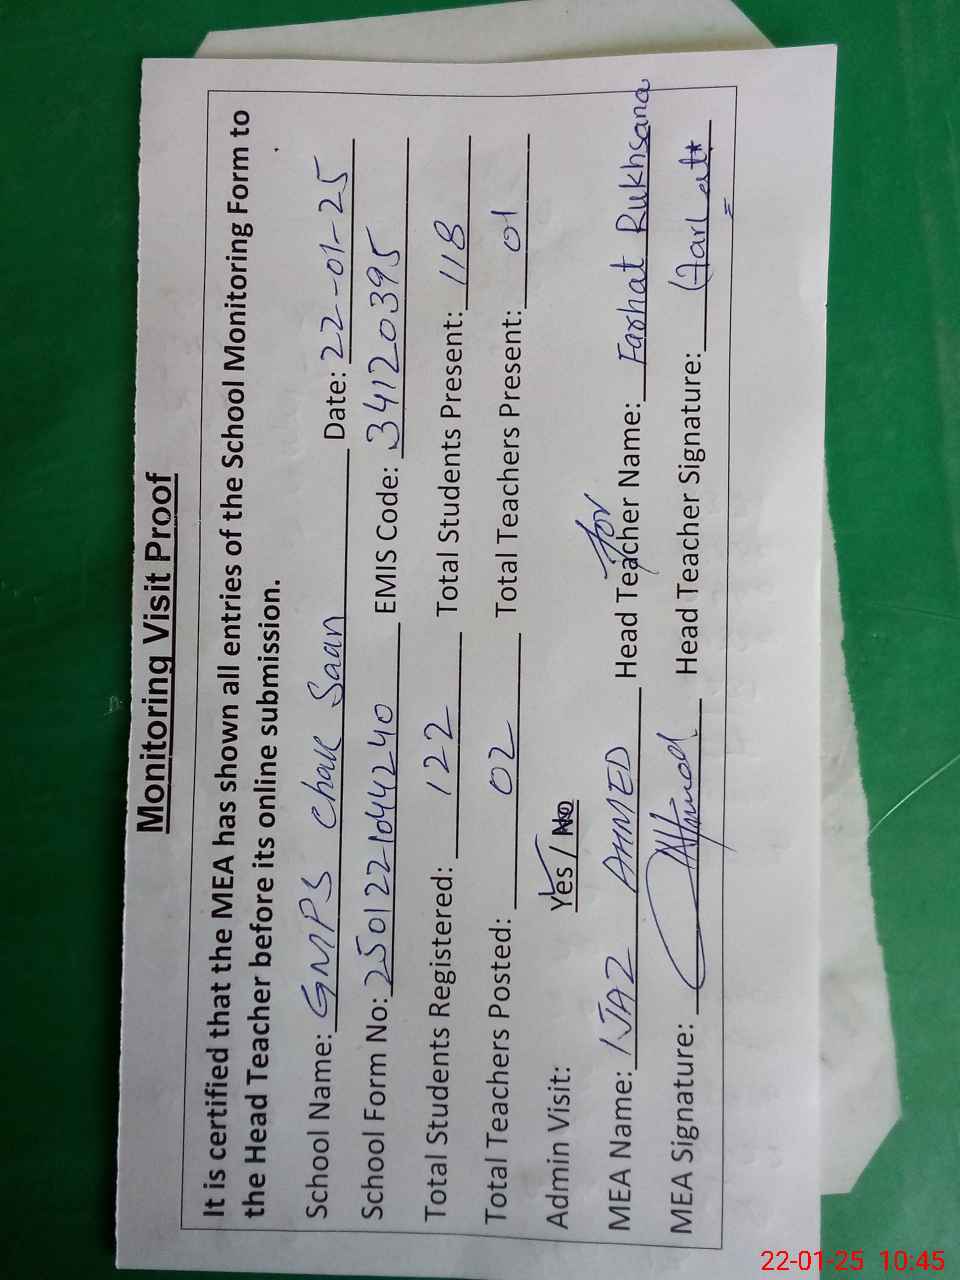 Monitoring Visit Proof
It is certified that the MEA has shown all entries of the School Monitoring Form to
the Head Teacher before its online submission.
School Name: GMPS Chak Saan Date: 22-01-25
School Form No: 250122104 4240 EMIS Code: 34120395
Total Students Registered: 122 Total Students Present: 118
Total Teachers Posted: 02 Total Teachers Present: 01
Admin Visit: Yes/No
for
MEA Name: IJAZ AHMED Head Teacher Name: Farhat Rukhsana
MEA Signature: Head Teacher Signature:
22-01-25 10:45